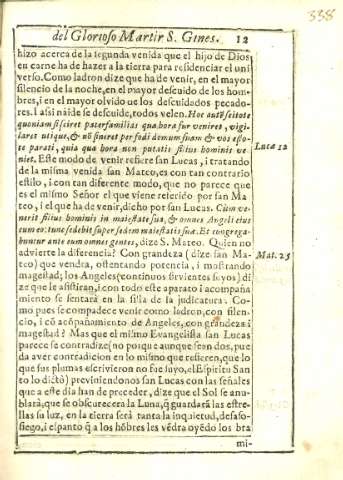 338
del Glorioso Martir S. Gines. 12
hizo acerca de la segunda venida que el hijo de Dios
en carne ha de hazer a la tierra para residenciar el uni
verso. Como ladron dize que ha de venir, en el mayor
silencio de la noche, en el mayor descuido de los hom
bres, i en el mayor olvido de los descuidados pecado
res. I asi nãide se descuide, todos velen. Hoc autẽ scitote
quoniam si sciret paterfamilias qua hora fur veniret, vigi
laret utique, & nõ sineret perfodi domum suam & vos esto-
te parati, quia qua hora non putatis filius hominis ve-
niet. Este modo de venir refiere san Lucas, i tratando
de la misma venida san Mateo, es con tan contrario
estilo, i con tan diferente modo, que no parece que
es el mismo Señor el que viene referido por san Ma
teo, i el que ha de venir, dicho por san Lucas. Cùm ve-
nerit filius hominis in maiestate sua, & omnes Angeli eius
cum eo: tunc sedebit super sedem maiestatis suæ. Et congrega-
buntur ante eum omnes gentes, dize S. Mateo. Quien no
advierte la diferencia? Con grandeza (dize san Ma-
teo) que vendra, ostentando potencia, i mostrando
magestad; los Angeles (continuos sirvientes suyos) di
ze que le asistiran, i con todo este aparato i acompaña
miento se sentará en la silla de la judicatura. Co-
mo pues se compadece venir como ladron, con silen-
cio, i cõ acõpañamiento de Angeles, con grandeza i
magestad? Mas que el mismo Evangelista san Lucas
parece se contradize (no porque aunque sean dos, pue
da aver contradicion en lo mismo que refieren, que lo
que sus plumas escrivieron no fue suyo, el Espiritu San
to lo dictò) previniendonos san Lucas con las señales
que a este dia han de preceder, dize que el Sol se anu-
blará, que se obscurecerà la Luna, q̃ guardarà las estre-
llas su luz, en la tierra serà tanta la inquietud, desaso-
siego, i espanto q̃ a los hõbres les vẽdra oyẽdo los bra
mi-
Luca 12
Mat. 25